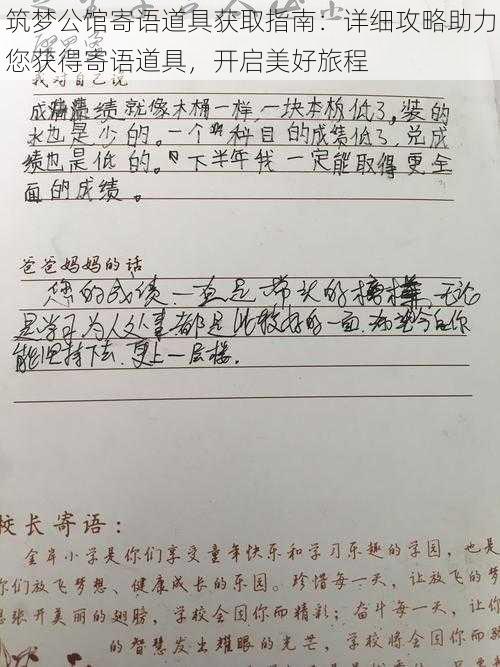 筑梦公馆寄语道具获取指南：详细攻略助力
您获得寄语道具，开启美好旅程
我对自己说
成绩就像木桶一样，一块本板低了，装的
水也是少的。一个科目的成绩低了，总成
绩也是低的。下半年我一定能取得更全
面的成绩。
爸爸妈妈的话
您的成绩一直是带头的榜样，无论
是学习为人处事都是比较好的一面，希望今后你
能坚持下去，更上一层楼。
校长寄语：
金岸小学是你们享受童年快乐和学习乐趣的学园，也是
你们放飞梦想、健康成长的乐园。珍惜每一天，让放飞的梦
想张开美丽的翅膀，学校会因你而精彩；奋斗每一天，让你
的智慧发出耀眼的光芒，学校将会因你